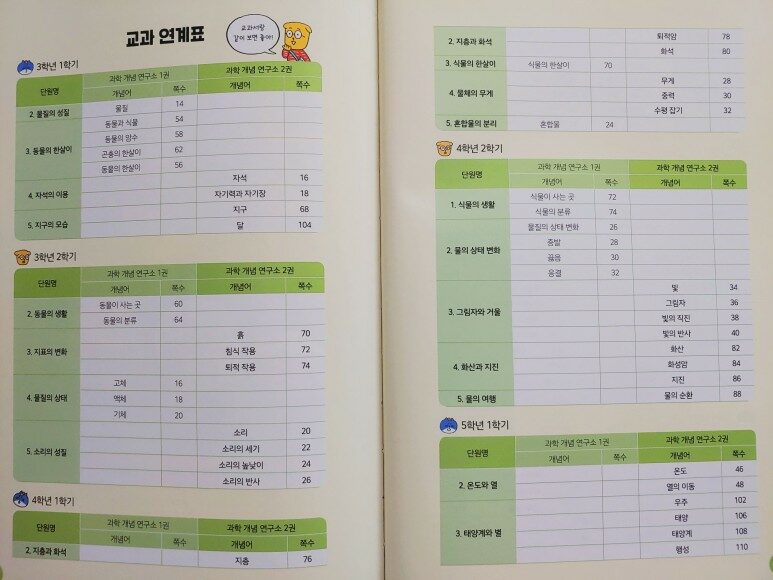 교과 연계표
교과서랑
같이 보면 좋아!
3학년 1학기
단원명 과학 개념 연구소 1권 과학 개념 연구소 2권
개념어 쪽수 개념어 쪽수
2. 물질의 성질 물질 14
3. 동물의 한살이 동물과 식물 54
동물의 암수 58
곤충의 한살이 62
동물의 한살이 56
4. 자석의 이용 자석 16
자기력과 자기장 18
5. 지구의 모습 지구 68
달 104
3학년 2학기
단원명 과학 개념 연구소 1권 과학 개념 연구소 2권
개념어 쪽수 개념어 쪽수
2. 동물의 생활 동물이 사는 곳 60
동물의 분류 64
3. 지표의 변화 흙 70
침식 작용 72
퇴적 작용 74
4. 물질의 상태 고체 16
액체 18
기체 20
5. 소리의 성질 소리 20
소리의 세기 22
소리의 높낮이 24
소리의 반사 26
4학년 1학기
단원명 과학 개념 연구소 1권 과학 개념 연구소 2권
개념어 쪽수 개념어 쪽수
2. 지층과 화석 지층 76
2. 지층과 화석 퇴적암 78
화석 80
3. 식물의 한살이 식물의 한살이 70
4. 물체의 무게 무게 28
중력 30
수평 잡기 32
5. 혼합물의 분리 혼합물 24
4학년 2학기
단원명 과학 개념 연구소 1권 과학 개념 연구소 2권
개념어 쪽수 개념어 쪽수
1. 식물의 생활 식물이 사는 곳 72
식물의 분류 74
2. 물의 상태 변화 물질의 상태 변화 26
증발 28
끓음 30
응결 32
3. 그림자와 거울 빛 34
그림자 36
빛의 직진 38
빛의 반사 40
4. 화산과 지진 화산 82
화성암 84
지진 86
5. 물의 여행 물의 순환 88
5학년 1학기
단원명 과학 개념 연구소 1권 과학 개념 연구소 2권
개념어 쪽수 개념어 쪽수
2. 온도와 열 온도 46
열의 이동 48
3. 태양계와 별 우주 102
태양 106
태양계 108
행성 110